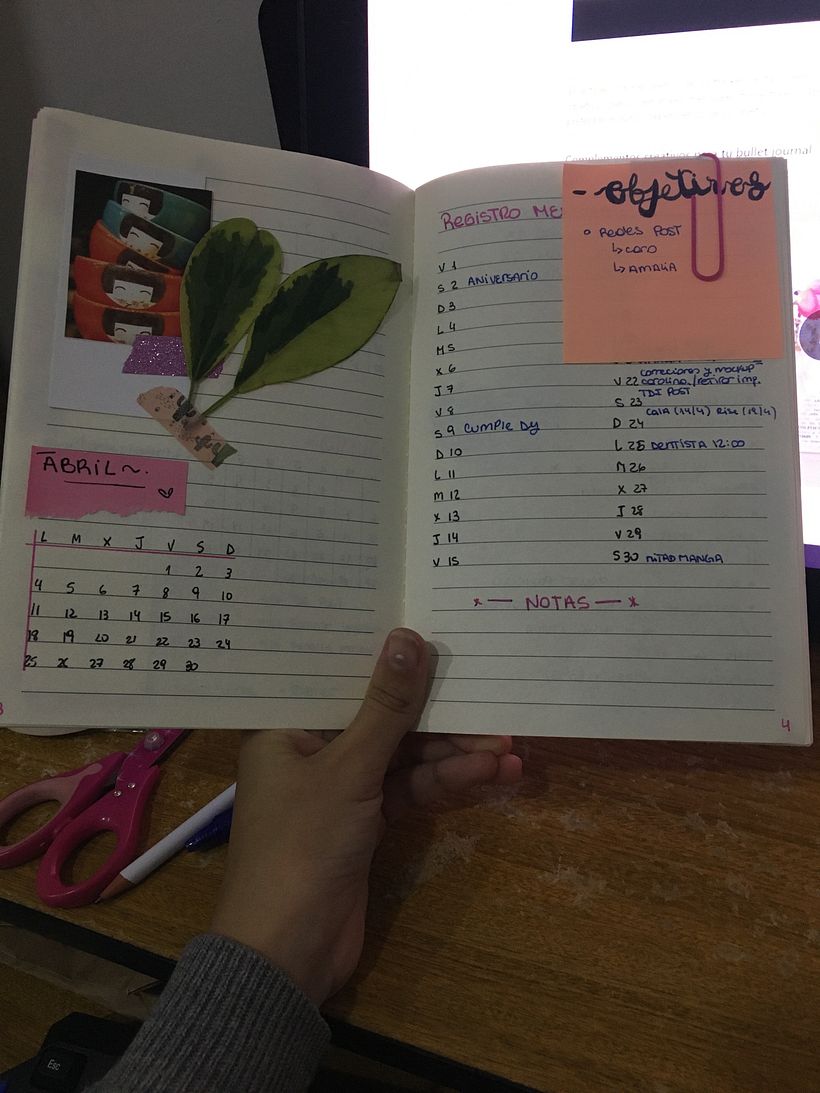 ABRIL~.
L M X J V S D
1 2 3
4 5 6 7 8 9 10
11 12 13 14 15 16 17
18 19 20 21 22 23 24
25 26 27 28 29 30
REGISTRO
V 1
S 2 ANIVERSARIO
D 3
L 4
M 5
X 6
J 7
V 8
S 9 CUMPLE DY
D 10
L 11
M 12
X 13
J 14
V 15
- objetivos
REDES POST
↳ CARO
↳ AMALIA
correciones y mockup
V 22 carolina/retiro imp.
TDI POST
S 23
CATA (14/4) Rise (19/4)
D 24
L 25 DENTISTA 12:00
M 26
X 27
J 28
V 29
S 30 MITAD MANGA
* — NOTAS — *
4
Complementos creativos para tu bullet journal
Esc